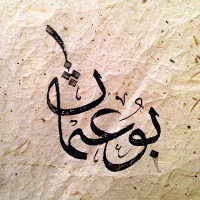 بوعثمان